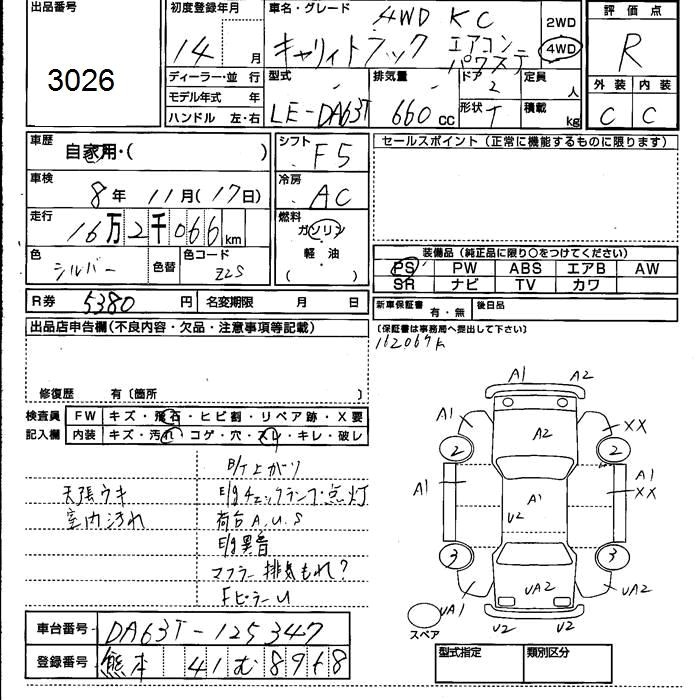 出品番号
3026
初度登録年月
14 月
車名・グレード
4WD KC
キャリィトラック エアコン パワステ
2WD
4WD
評価点
R
外装 内装
C C
ディーラー・並行
モデル年式 年
ハンドル 左・右
型式
LE-DA63T
排気量
660 cc
ドア
2
形状
T
定員
人
積載
kg
車歴
自家用・( )
シフト
F5
車検
8年 11月(17日)
冷房
AC
走行
16万2千066km
燃料
ガソリン
軽油
( )
色
シルバー
色替
色コード
Z2S
セールスポイント(正常に機能するものに限ります)
装備品(純正品に限り○をつけてください)
PS PW ABS エアB AW
SR ナビ TV カワ
R券 5380 円
名変期限 月 日
新車保証書 有・無
後日品
(保証書は事務局へ提出して下さい)
出品店申告欄(不良内容・欠品・注意事項等記載)
修復歴 有〔箇所 〕
検査員記入欄
FW キズ・飛石・ヒビ割・リペア跡・X要
内装 キズ・汚れ・コゲ・穴・スレ・キレ・破レ
天張ウキ
室内汚れ
B/T上がり
E/gチェックランプ点灯
荷台A.U.S
E/g異音
マフラー排気もれ?
FピラーU
162067K
A1 A2
A1 XX
A2
2 2
A1 A1 A1
XX
U2
3 3
UA1 UA2 UA2
U2 U2
スペア
車台番号 DA63T-125347
登録番号 熊本 41 む 8968
型式指定 類別区分